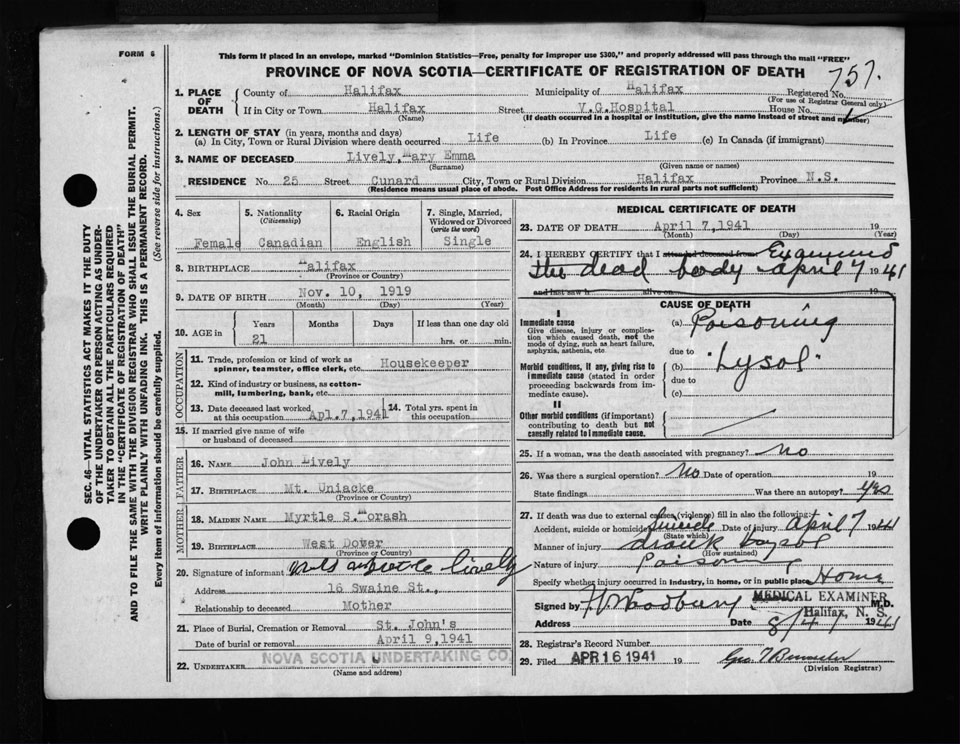 FORM 6
This form if placed in an envelope, marked "Dominion Statistics—Free, penalty for improper use $300," and properly addressed will pass through the mail "FREE"
PROVINCE OF NOVA SCOTIA—CERTIFICATE OF REGISTRATION OF DEATH
757.
1. PLACE OF DEATH
County of Halifax Municipality of Halifax Registered No.
(For use of Registrar General only)
If in City or Town Halifax Street V.G.Hospital House No.
(Name) (If death occurred in a hospital or institution, give the name instead of street and number)
2. LENGTH OF STAY (in years, months and days)
(a) In City, Town or Rural Division where death occurred Life (b) In Province Life (c) In Canada (if immigrant)
3. NAME OF DECEASED Lively, Mary Emma
(Surname) (Given name or names)
RESIDENCE No. 25 Street Cunard City, Town or Rural Division Halifax Province N.S.
(Residence means usual place of abode. Post Office Address for residents in rural parts not sufficient)
4. Sex Female
5. Nationality (Citizenship) Canadian
6. Racial Origin English
7. Single, Married, Widowed or Divorced (write the word) Single
8. BIRTHPLACE Halifax
(Province or Country)
9. DATE OF BIRTH Nov. 10, 1919
(Month) (Day) (Year)
10. AGE in Years Months Days If less than one day old
21 hrs. or min.
OCCUPATION
11. Trade, profession or kind of work as spinner, teamster, office clerk, etc. Housekeeper
12. Kind of industry or business, as cotton-mill, lumbering, bank, etc.
13. Date deceased last worked at this occupation Apl.7,1941
14. Total yrs. spent in this occupation
15. If married give name of wife or husband of deceased
FATHER
16. NAME John Lively
17. BIRTHPLACE Mt. Uniacke
(Province or Country)
MOTHER
18. MAIDEN NAME Myrtle S.Morash
19. BIRTHPLACE West Dover
(Province or Country)
20. Signature of informant Lively
Address 16 Swaine St.,
Relationship to deceased Mother
21. Place of Burial, Cremation or Removal St. John's
Date of burial or removal April 9,1941
22. UNDERTAKER NOVA SCOTIA UNDERTAKING CO.
(Name and address)
MEDICAL CERTIFICATE OF DEATH
23. DATE OF DEATH April 7,1941 19
(Month) (Day) (Year)
24. I HEREBY CERTIFY that I attended deceased from Examined
the dead body April 7 1941
and last saw h alive on 19
CAUSE OF DEATH
I
Immediate cause
Give disease, injury or complication which caused death, not the mode of dying, such as heart failure, asphyxia, asthenia, etc
(a) Poisoning
due to
Morbid conditions, if any, giving rise to immediate cause (stated in order proceeding backwards from immediate cause).
"Lysol"
due to
(c)
II
Other morbid conditions (if important) contributing to death but not causally related to immediate cause.
25. If a woman, was the death associated with pregnancy? no
26. Was there a surgical operation? no Date of operation 19
State findings Was there an autopsy? yes
27. If death was due to external causes (violence) fill in also the following:
Accident, suicide or homicide Suicide Date of injury April 7 1941
(State which)
Manner of injury drank Lysol
(How sustained)
Nature of injury Poisoning
Specify whether injury occurred in industry, in home, or in public place Home
Signed by Woodbury MEDICAL EXAMINER M.D.
Halifax, N. S.
Address Date 8/4/ 1941
28. Registrar's Record Number
29. Filed APR 16 1941 19
(Division Registrar)
SEC. 46—VITAL STATISTICS ACT MAKES IT THE DUTY
OF THE UNDERTAKER OR PERSON ACTING AS UNDER-
TAKER TO OBTAIN ALL THE PARTICULARS REQUIRED
IN THE "CERTIFICATE OF REGISTRATION OF DEATH"
AND TO FILE THE SAME WITH THE DIVISION REGISTRAR WHO SHALL ISSUE THE BURIAL PERMIT.
WRITE PLAINLY WITH UNFADING INK. THIS IS A PERMANENT RECORD.
Every item of information should be carefully supplied.
(See reverse side for instructions.)